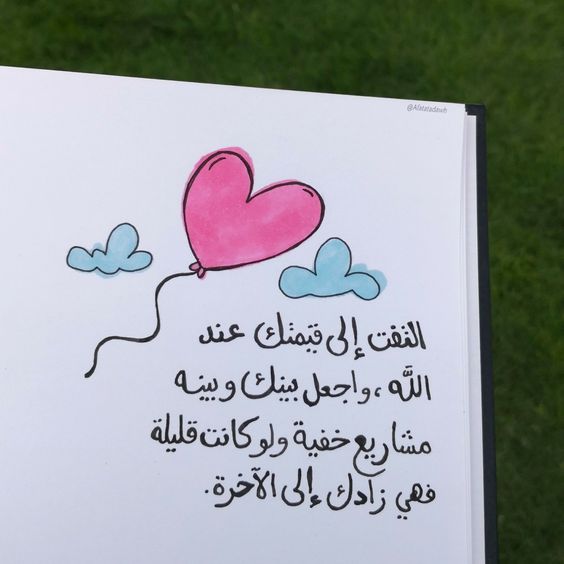 @Afatatadawb
التفت إلى قيمتك عند
اللَّه ، واجعل بينك وبينه
مشاريع خفية ولو كانت قليلة
فهي زادك إلى الآخرة.